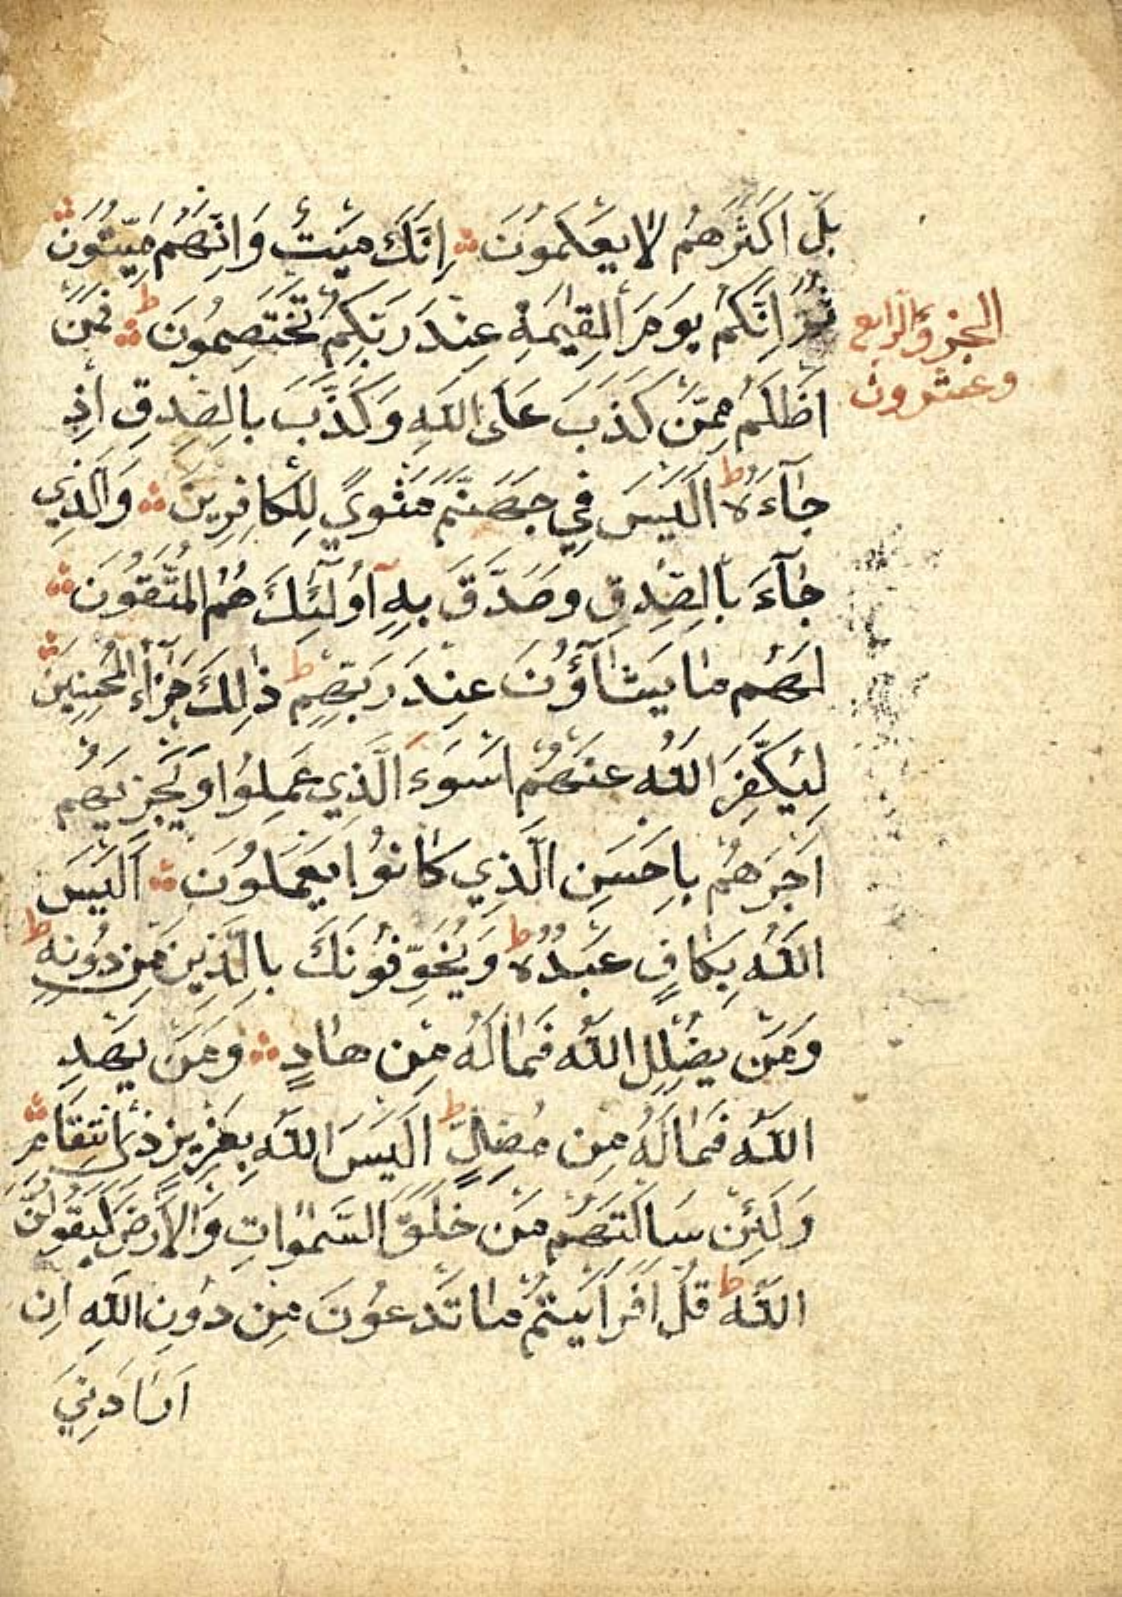 بَلْ اَكْثَرُهُمْ لَا يَعْلَمُونَ اِنَّكَ مَيِّتٌ وَاِنَّهُمْ مَيِّتُونَ
ثُمَّ اِنَّكُمْ يَوْمَ الْقِيٰمَةِ عِنْدَ رَبِّكُمْ تَخْتَصِمُونَ ط فَمَنْ
الجزؤ الرابع
وعشرون
اَظْلَمُ مِمَّنْ كَذَبَ عَلَى اللّٰهِ وَكَذَّبَ بِالصِّدْقِ اِذْ
جَآءَهُ ط اَلَيْسَ فِي جَهَنَّمَ مَثْوًي لِلْكَافِرِينَ وَالَّذِي
جَآءَ بِالصِّدْقِ وَصَدَّقَ بِهِٓ اُولٰٓئِكَ هُمُ الْمُتَّقُونَ
لَهُمْ مَا يَشَآؤُنَ عِنْدَ رَبِّهِمْ ط ذٰلِكَ جَزَآءُ الْمُحْسِنِينَ
لِيُكَفِّرَ اللّٰهُ عَنْهُمْ اَسْوَءَ الَّذِي عَمِلُوا وَيَجْزِيَهُمْ
اَجْرَهُمْ بِاَحْسَنِ الَّذِي كَانُوا يَعْمَلُونَ اَلَيْسَ
اللّٰهُ بِكَافٍ عَبْدَهُ ط وَيُخَوِّفُونَكَ بِالَّذِينَ مِنْ دُونِهِ ط
وَمَنْ يُضْلِلِ اللّٰهُ فَمَا لَهُ مِنْ هَادٍ وَمَنْ يَهْدِ
اللّٰهُ فَمَا لَهُ مِنْ مُضِلٍّ ط اَلَيْسَ اللّٰهُ بِعَزِيزٍ ذِي انْتِقَامٍ
وَلَئِنْ سَاَلْتَهُمْ مَنْ خَلَقَ السَّمٰوَاتِ وَالْاَرْضَ لَيَقُولُنَّ
اللّٰهُ ط قُلْ اَفَرَاَيْتُمْ مَا تَدْعُونَ مِنْ دُونِ اللّٰهِ اِنْ
اَرَادَنِيَ